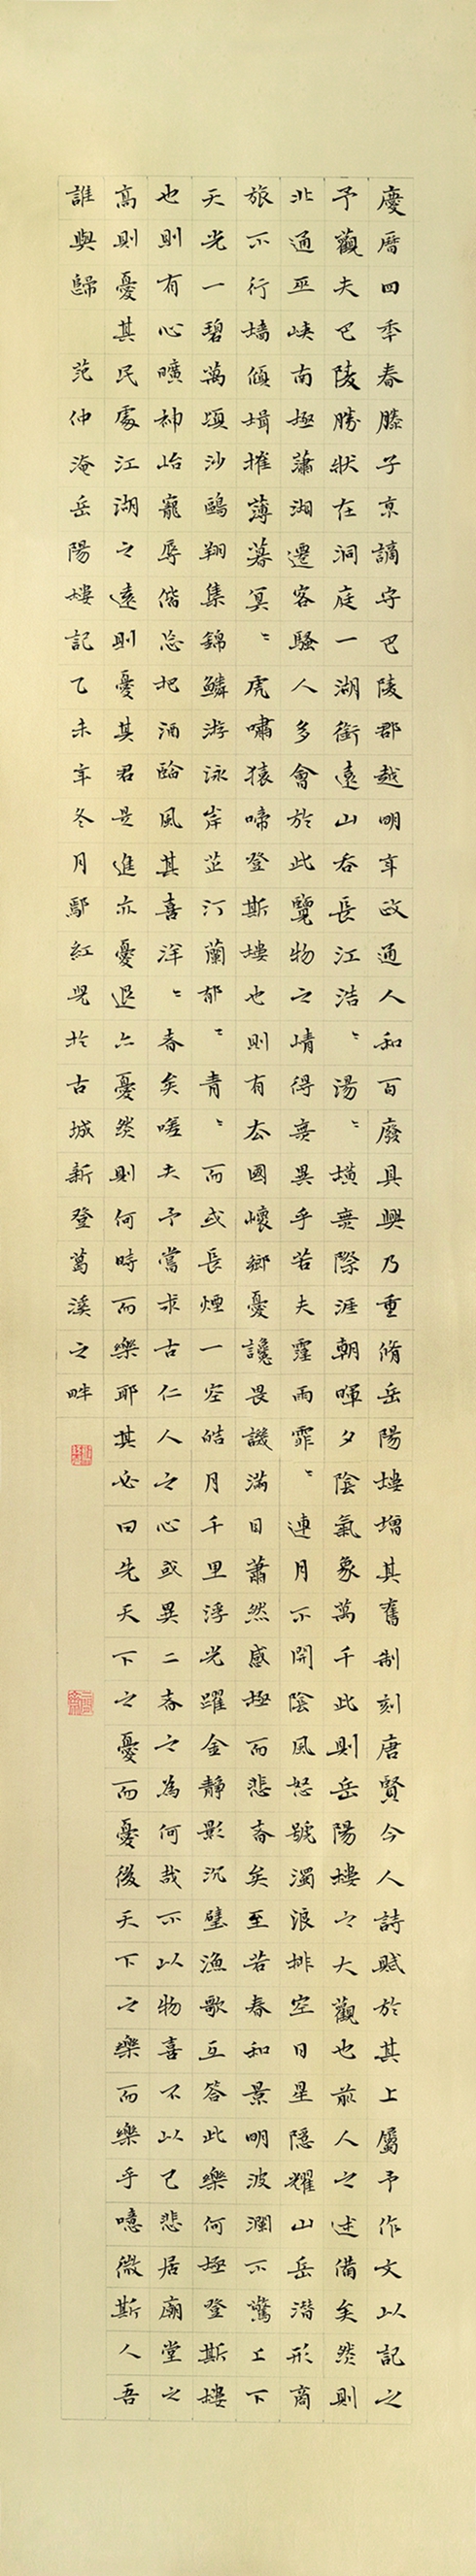 慶曆四年春滕子京謫守巴陵郡越明年政通人和百廢具興乃重脩岳陽樓增其舊制刻唐賢今人詩賦於其上屬予作文以記之
予觀夫巴陵勝狀在洞庭一湖銜遠山吞長江浩〻湯〻橫無際涯朝暉夕陰氣象萬千此則岳陽樓之大觀也前人之述備矣然則
北通巫峽南極瀟湘遷客騷人多會於此覽物之情得無異乎若夫霪雨霏〻連月不開陰風怒號濁浪排空日星隱耀山岳潛形商
旅不行檣傾楫摧薄暮冥〻虎嘯猿啼登斯樓也則有去國懷鄉憂讒畏譏滿目蕭然感極而悲者矣至若春和景明波瀾不驚上下
天光一碧萬頃沙鷗翔集錦鱗游泳岸芷汀蘭郁〻青〻而或長煙一空皓月千里浮光躍金靜影沉璧漁歌互答此樂何極登斯樓
也則有心曠神怡寵辱偕忘把酒臨風其喜洋〻者矣嗟夫予嘗求古仁人之心或異二者之為何哉不以物喜不以己悲居廟堂之
高則憂其民處江湖之遠則憂其君是進亦憂退亦憂然則何時而樂耶其必曰先天下之憂而憂後天下之樂而樂乎噫微斯人吾
誰與歸范仲淹岳陽樓記乙未年冬月鄢紅於古城新登葛溪之畔